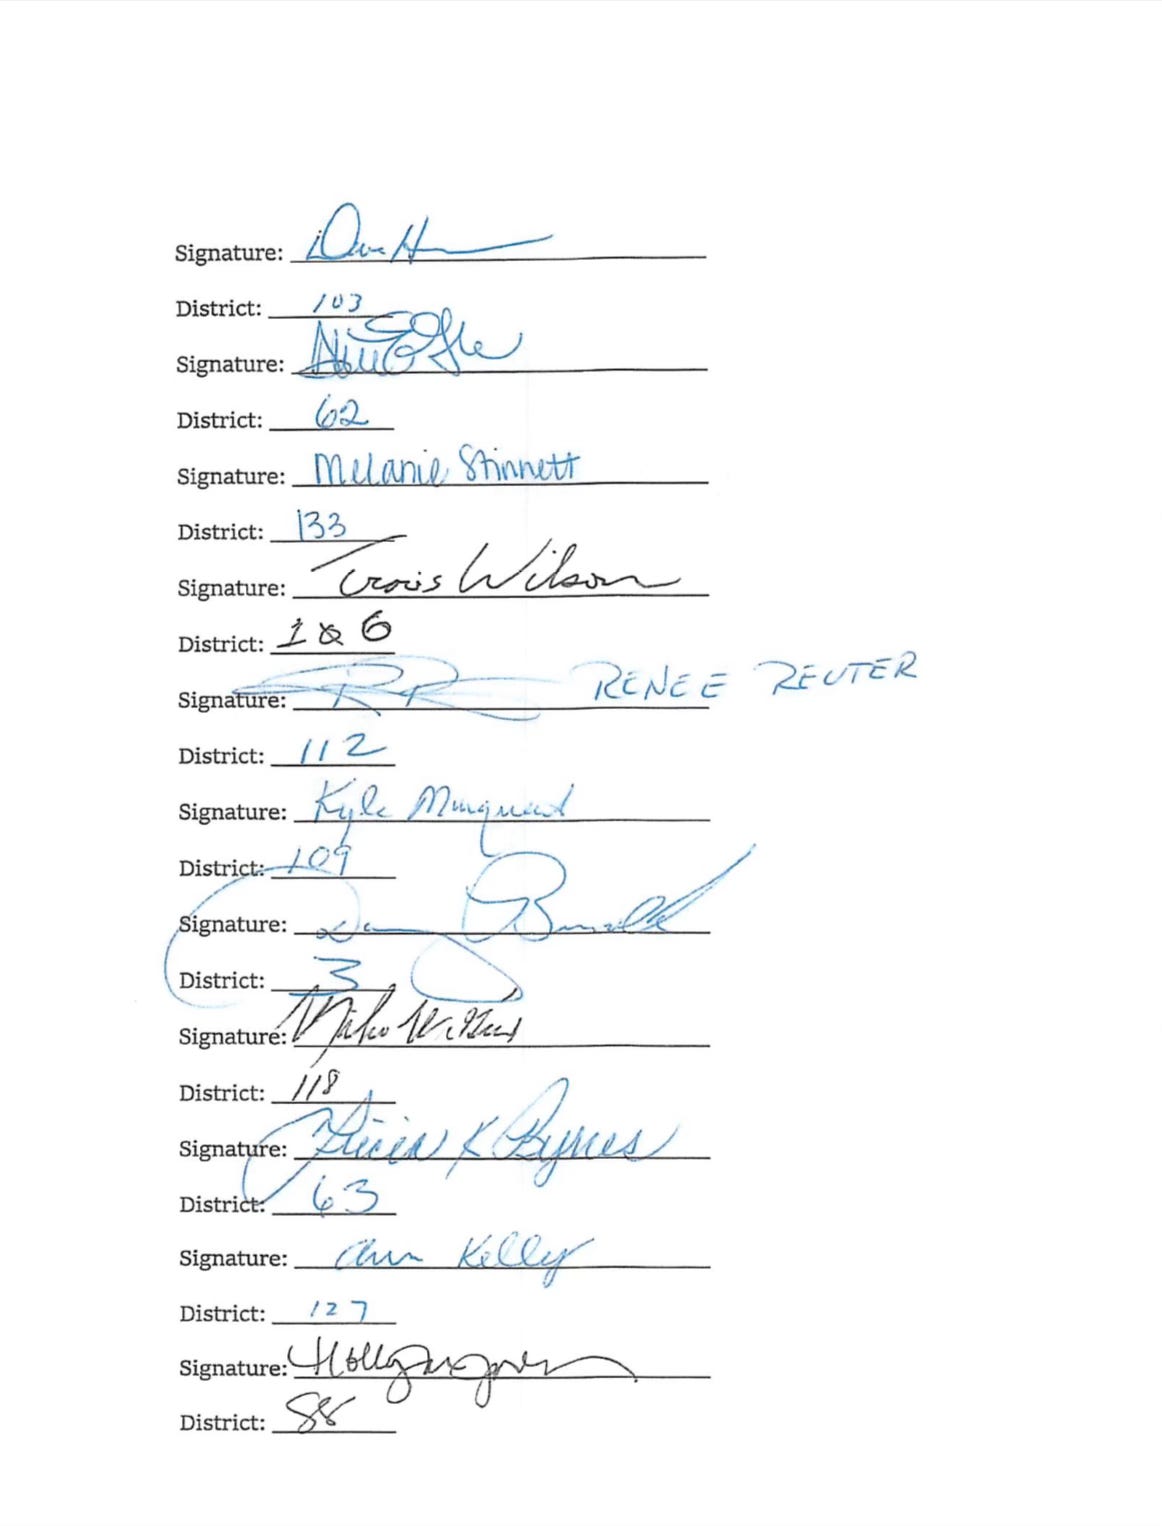 Signature: Dave H
District: 103
Signature:
District: 62
Signature: Melanie Stinnett
District: 133
Signature: Travis Wilson
District: 106
Signature: RR RENEE REUTER
District: 112
Signature: Kyle Marquart
District: 109
Signature: Danny Busick
District: 3
Signature: Mike
District: 118
Signature: Tricia K Byrnes
District: 63
Signature: Ann Kelly
District: 127
Signature: Holly Jones
District: 88